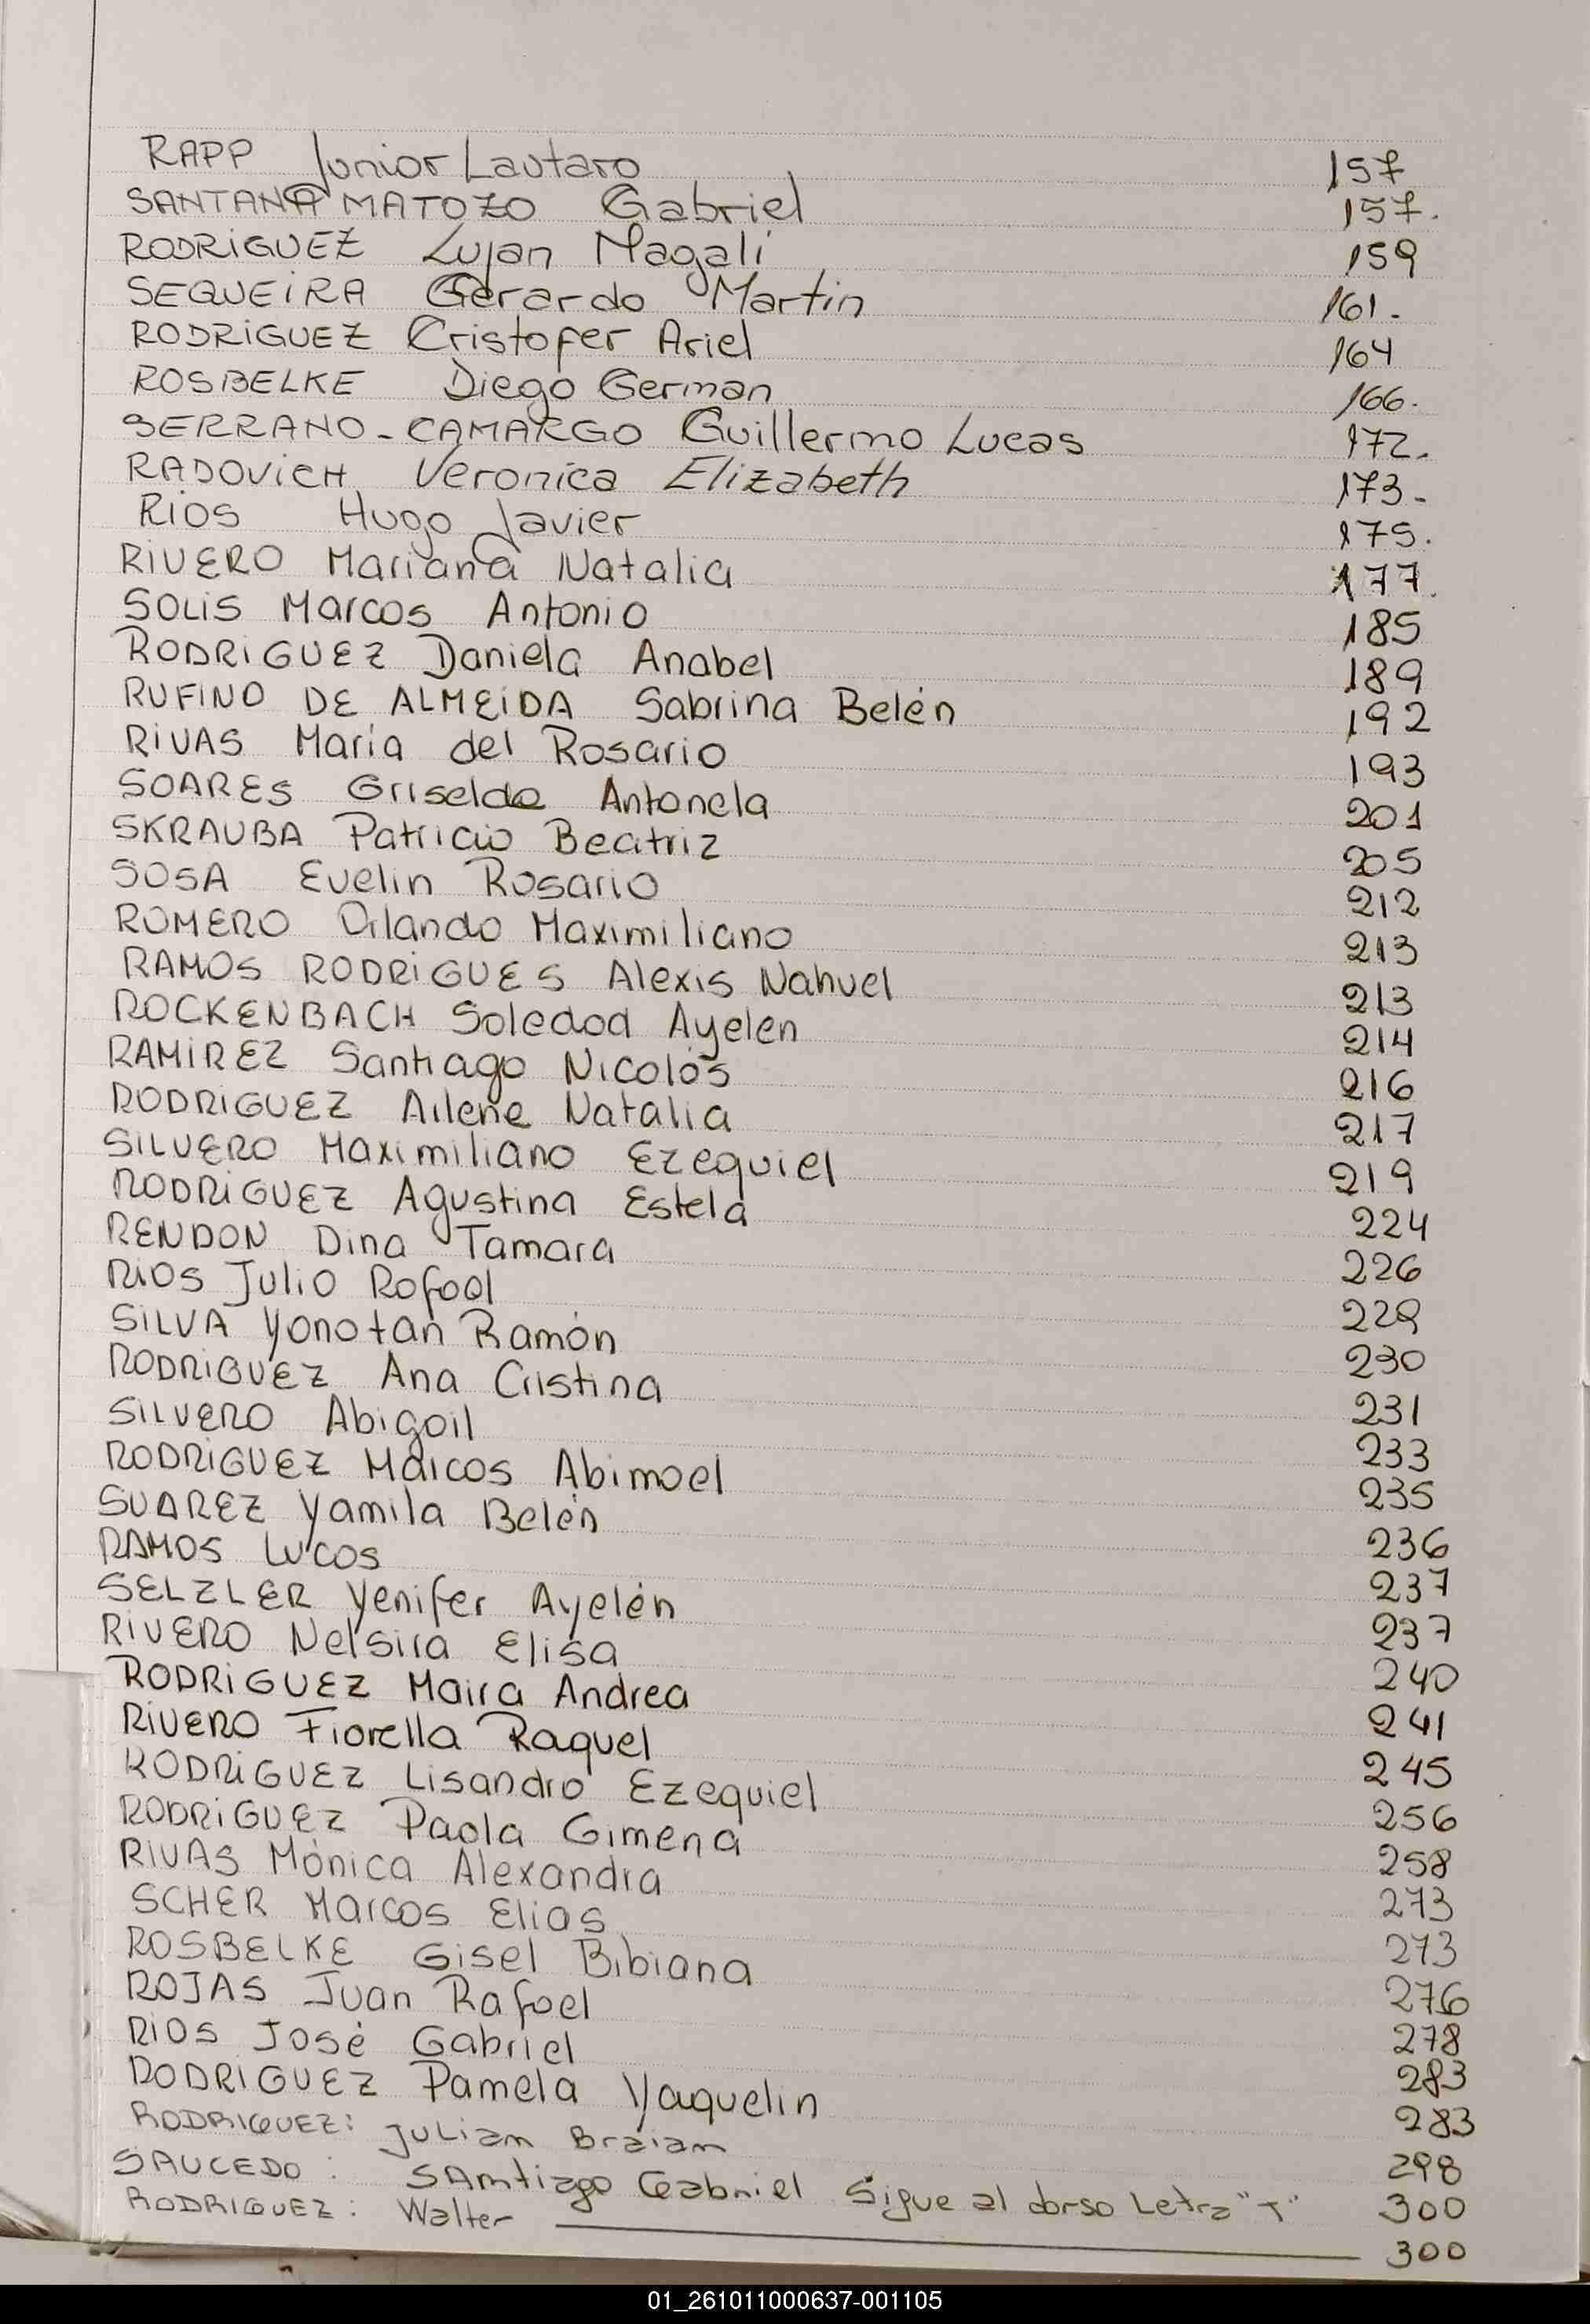 RAPP Junior Lautaro 157
SANTANA MATOZO Gabriel 157.
RODRiGUEZ Lujan Magali 159
SEQUEiRA Gerardo Martin 161.
RODRiGUEZ Cristofer Ariel 164
ROSBELKE Diego German 166.
SERRANO-CAMARGO Guillermo Lucas 172.
RADOViCH Veronica Elizabeth 173-
RiOS Hugo Javier 175.
RiVERO Mariana Natalia 177.
SOLiS Marcos Antonio 185
RODRiGUEZ Daniela Anabel 189
RUFINO DE ALMEiDA Sabrina Belén 192
RiVAS María del Rosario 193
SOARES Griselda Antonela 201
SKRAUBA Patricia Beatriz 205
SOSA Evelin Rosario 212
ROMERO Orlando Maximiliano 213
RAMOS RODRiGUES Alexis Nahuel 213
ROCKENBACH Soledad Ayelén 214
RAMiREZ Santiago Nicolás 216
RODRiGUEZ Ailene Natalia 217
SiLVERO Maximiliano Ezequiel 219
RODRiGUEZ Agustina Estela 224
RENDON Dina Tamara 226
RiOS Julio Rafael 229
SiLVA Yonatan Ramón 230
RODRiGUEZ Ana Cristina 231
SiLVERO Abigail 233
RODRiGUEZ Marcos Abimael 235
SUAREZ Yamila Belén 236
RAMOS Lucas 237
SELZLER Yenifer Ayelén 237
RiVERO Nelsira Elisa 240
RODRiGUEZ Maira Andrea 241
RiVERO Fiorella Raquel 245
RODRiGUEZ Lisandro Ezequiel 256
RODRiGUEZ Paola Gimena 258
RiVAS Mónica Alexandra 273
SCHER Marcos Elias 273
ROSBELKE Gisel Bibiana 276
ROJAS Juan Rafael 278
RiOS José Gabriel 283
RODRIGUEZ Pamela Yaquelin 283
RODRIGUEZ: Julian Braian 298
SAUCEDO: SAntiago Gabriel Sigue al dorso Letra "T" 300
RODRIGUEZ: Walter 300
01_261011000637-001105